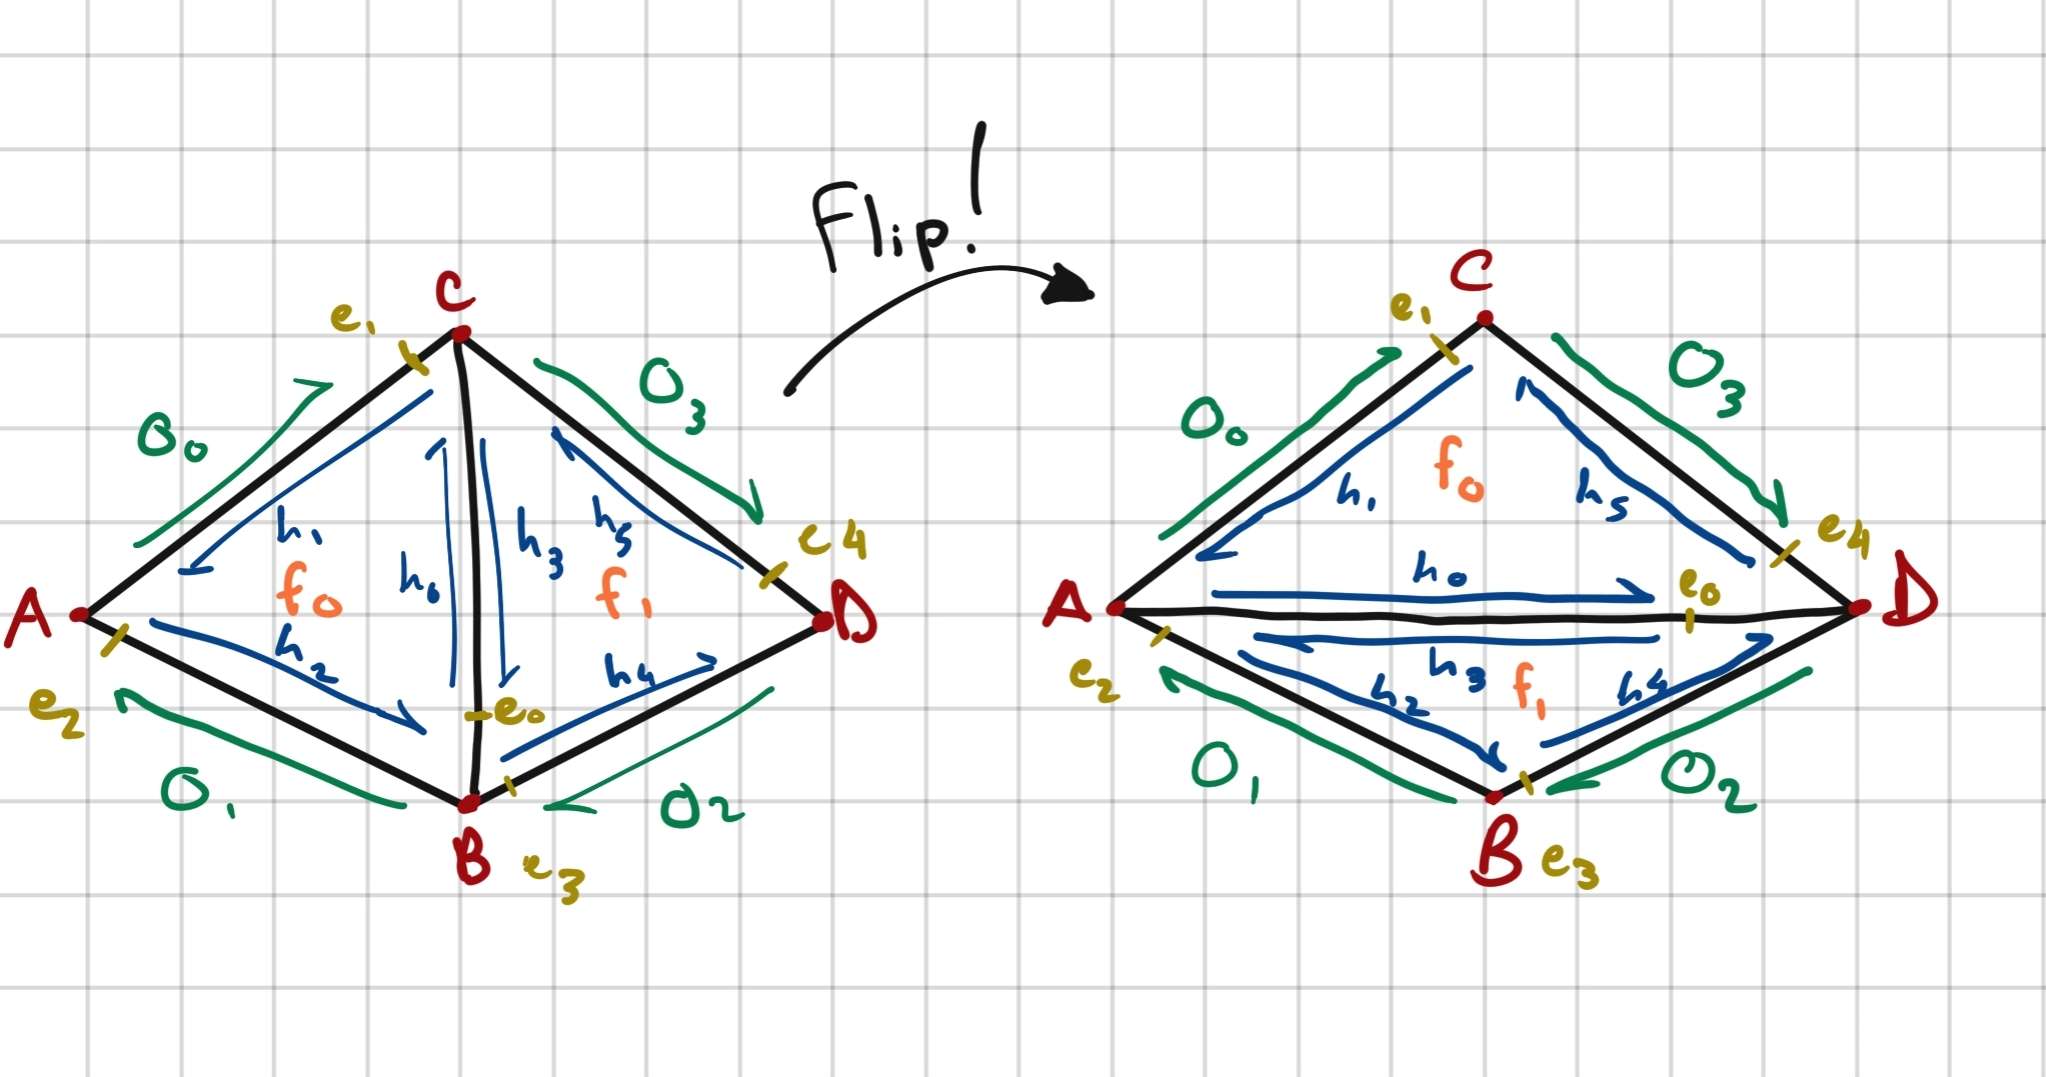 Flip!
C
e₁
O₀
O₃
h₁
h₀
h₃
h₅
e4
A
f₀
f₁
D
h₂
h₄
e₂
e₀
O₁
O₂
B
e₃
C
e₁
O₀
O₃
f₀
h₁
h₅
e₄
h₀
e₀
A
D
e₂
h₃
f₁
h₂
h₄
O₁
O₂
B
e₃